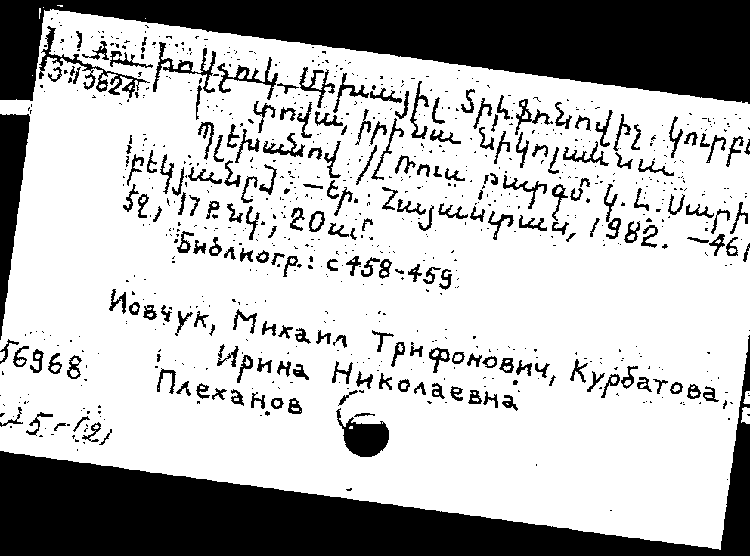 Арм
3-13824
Իովչուկ, Միխայիլ Տրիֆոնովիչ, Կուրբա
տովա, Իրինա Նիկոլաևնա
Պլեխանով /[Ռուս. թարգմ. Կ. Ա. Սարի
բեկյանը]. —Եր.: Հայաստան, 1982. —461
էջ, 17 թ. նկ.; 20 սմ.
Библиогр.: с 458-459
Иовчук, Михаил Трифонович, Курбатова,
56968 Ирина Николаевна
Плеханов